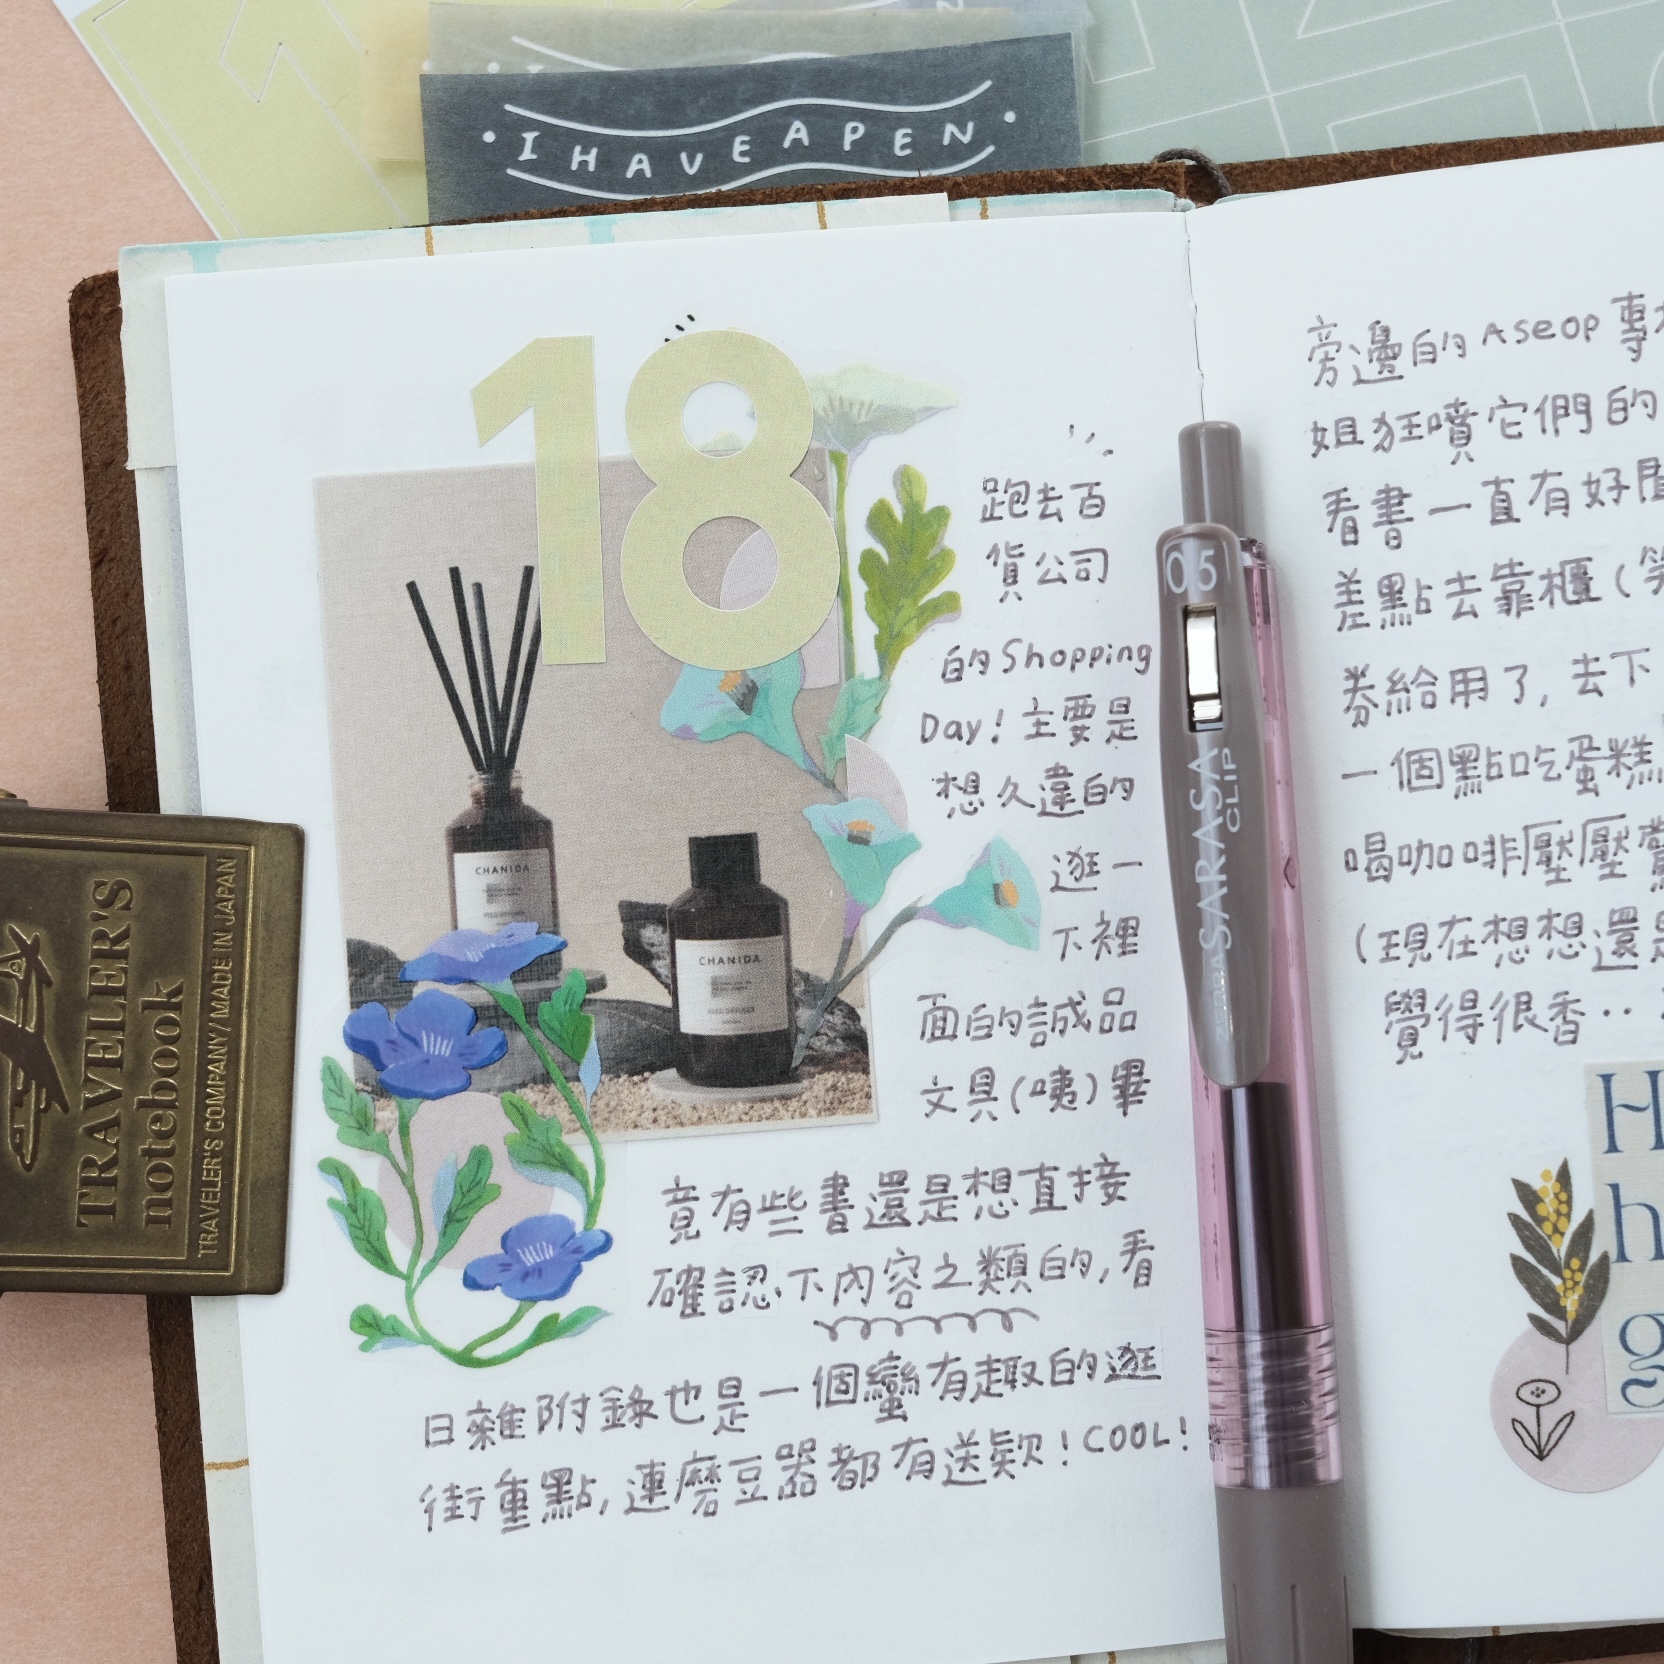 I HAVE A PEN
18
跑去百
貨公司
的 Shopping
Day! 主要是
想久違的
逛一
下裡
面的誠品
文具(咦)畢
竟有些書還是想直接
確認下內容之類的,看
日雜附錄也是一個蠻有趣的逛
街重點,連磨豆器都有送欸!COOL!
CHANIDA
CHANIDA
REED DIFFUSER
TRAVELER'S
notebook
TRAVELER'S COMPANY / MADE IN JAPAN
0.5
ZEBRA SARASA
CLIP
旁邊的 Aseop 專
姐狂噴它們的
看書一直有好聞
差點去靠櫃(笑
券給用了,去下
一個點吃蛋糕
喝咖啡壓壓驚
(現在想想還是
覺得很香..
H
h
g